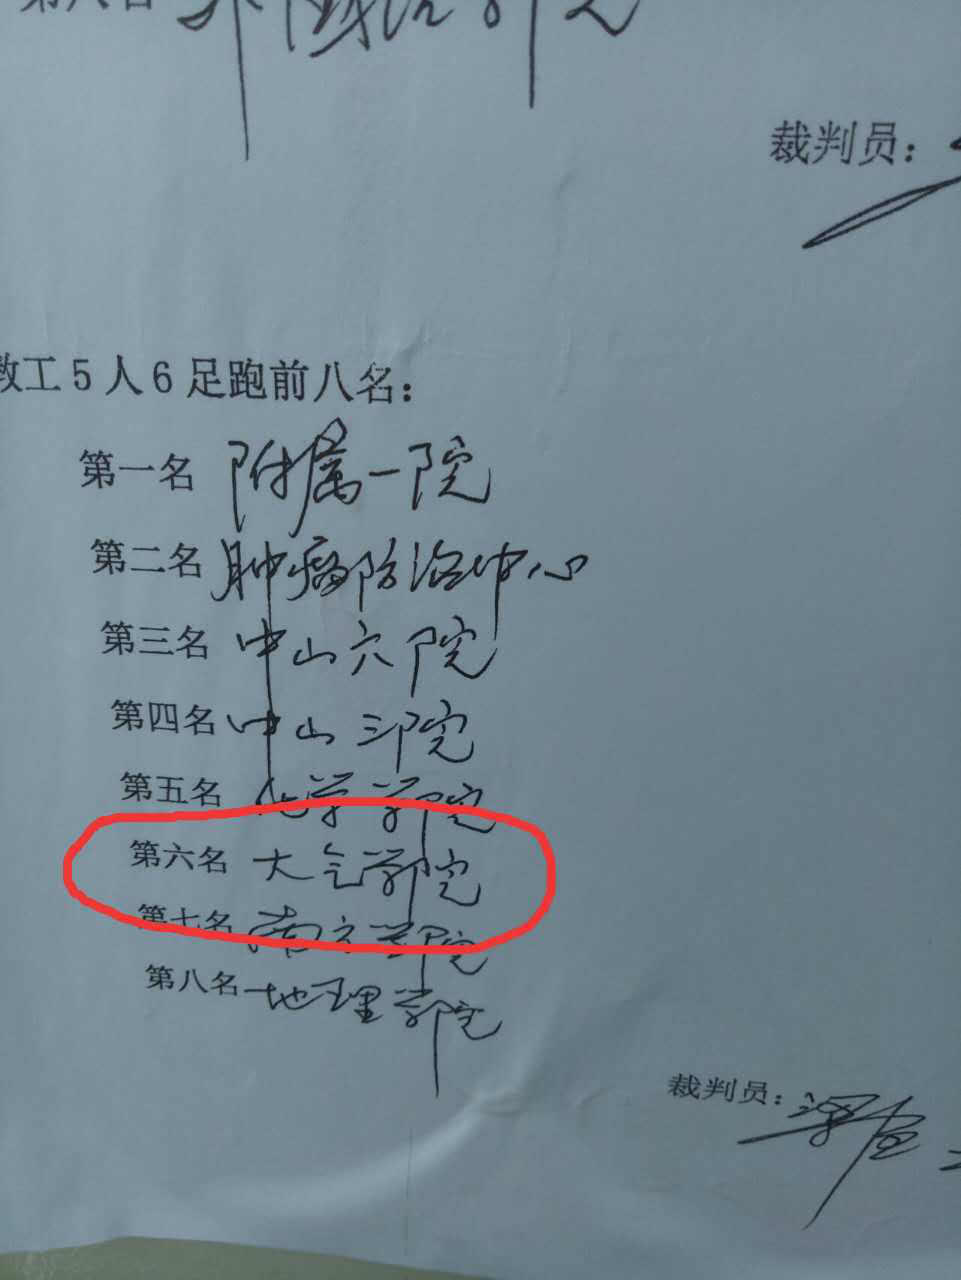 裁判员：
教工5人6足跑前八名：
第一名 附属一院
第二名 肿瘤防治中心
第三名 中山六院
第四名 中山三院
第五名 化学学院
第六名 大气学院
第七名 南方学院
第八名 地理学院
裁判员：